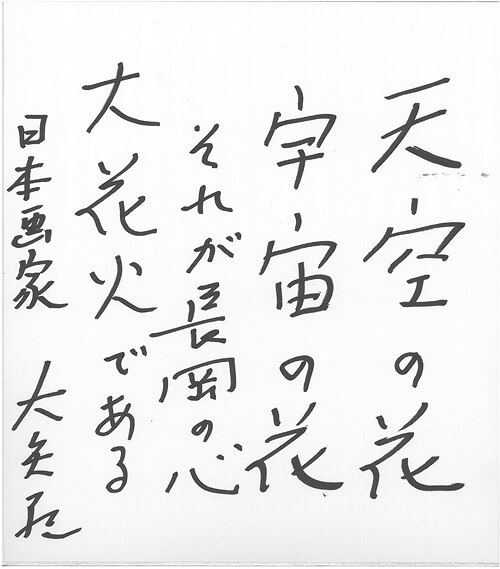 天空の花
宇宙の花
それが長岡の心
大花火である
日本画家 大矢紀